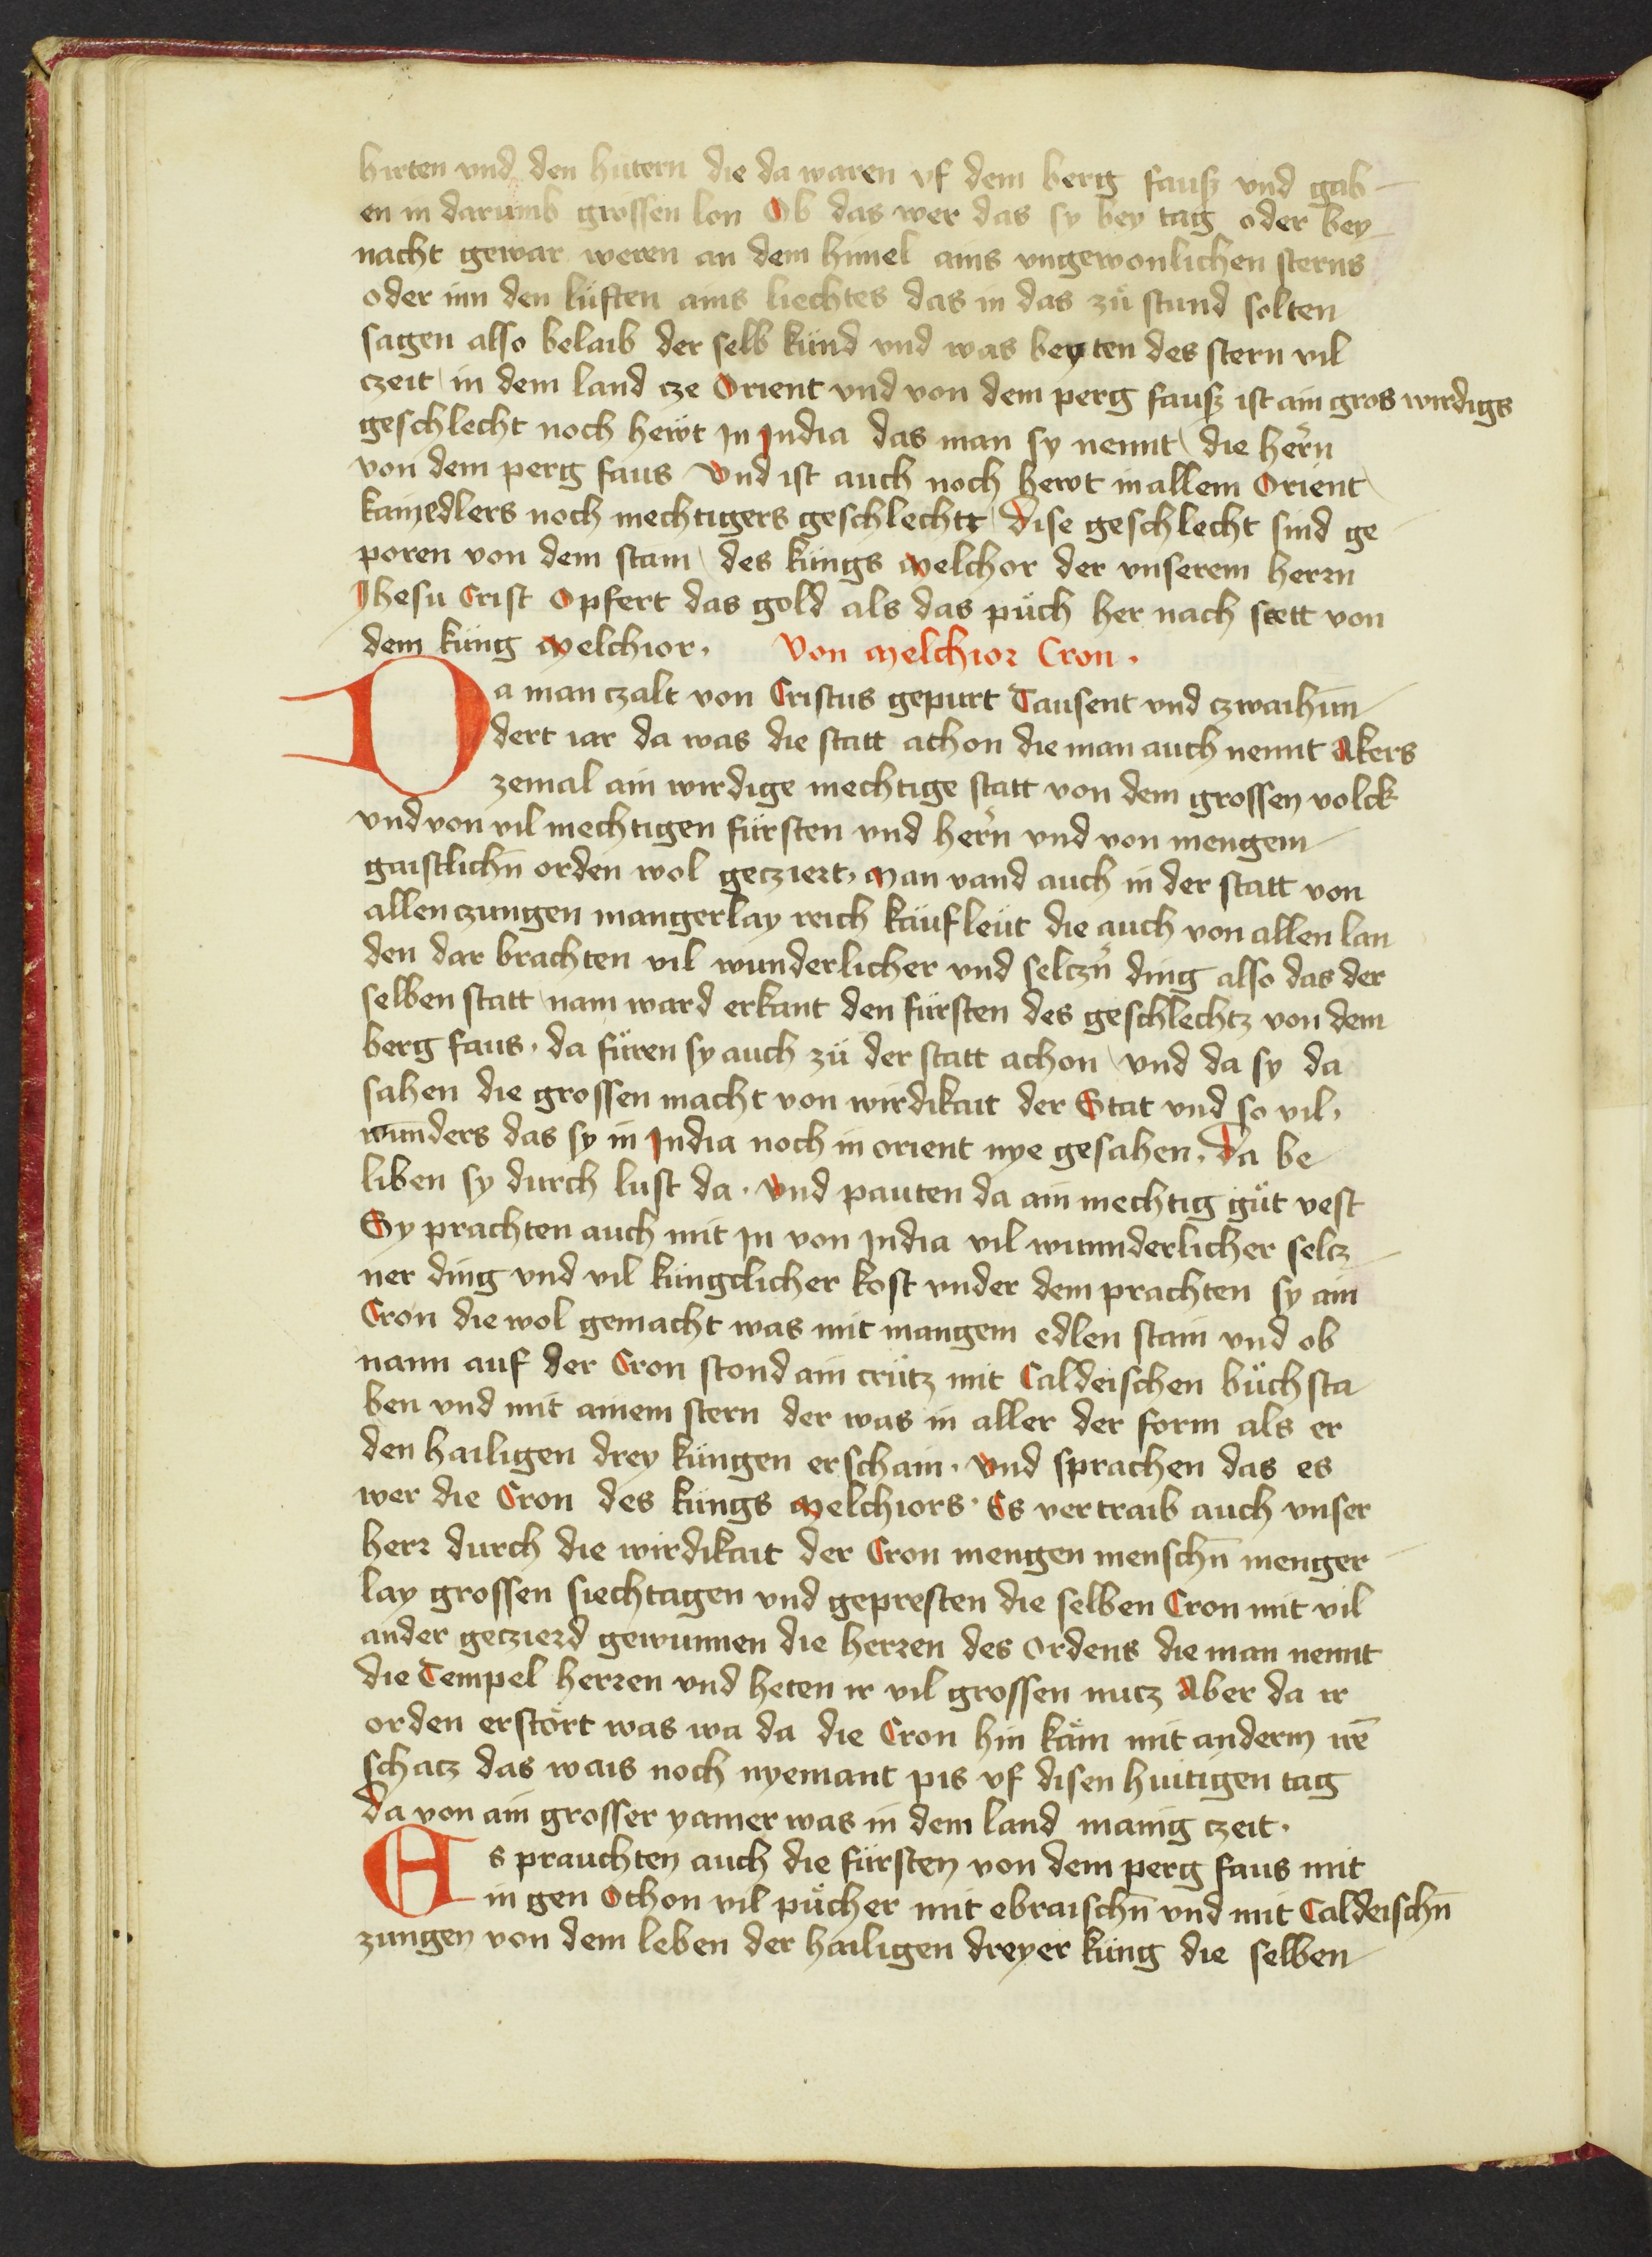 hirten vnd den hütern die da waren vf dem berg fausz vnd gab
en in darumb grossen lon Ob das wer das sy bey tag oder bey
nacht gewar weren an dem himel ains vngewonlichen sterns
oder inn den lüften ains liechtes das in das zů stund solten
sagen also belaib der selb künd vnd was beyten des stern vil
czeit in dem land cze Orient vnd von dem perg fausz ist ain gros wirdigs
geschlecht noch hewt In India das man sy nennt die hern̄
von dem perg faus Vnd ist auch noch hewt in allem Orient
kain edlers noch mechtigers geschlechtt Dise geschlecht sind ge
poren von dem stam des küngs Melchor der vnserem herrn
Ihesu Crist Opfert das gold als das půch her nach stett von
dem küng Melchior. Von Melchior Cron.
Da man czalt von Cristus gepurt Tausent vnd czwaihun
dert iar da was die statt achon die man auch nennt Akers
zemal ain wirdige mechtige statt von dem grossen volck
vnd von vil mechtigen fürsten vnd hern̄ vnd von mengem
gaistlichn̄ orden wol gecziert. Man vand auch in der statt von
allen czungen mangerlay reich käufleüt die auch von allen lan
den dar brachten vil wunderlicher vnd selczn̄ ding also das der
selben statt nam ward erkant den fürsten des geschlechtz von dem
berg faus. da füren sy auch zü der statt achon vnd da sy da
sahen die grossen macht von wirdikait der Stat vnd so vil
wunders das sy in India noch in orient nye gesahen. Da be
liben sy durch lust da. Vnd pauten da ain mechtig gůt vest
Sy prachten auch mit In von India vil wunnderlicher selcz
ner ding vnd vil küngclicher kost vnder dem prachten sy ain
Cron die wol gemacht was mit mangem edlen stain vnd ob
nann auf der Cron stond ain crütz mit Caldeischen bůchsta
ben vnd mit ainem stern der was in aller der form als er
den hailigen drey küngen erschain. Vnd sprachen das es
wer die Cron des küngs Melchiors. Es vertraib auch vnser
herr durch die wirdikait der Cron mengen menschn̄ menger
lay grossen siechtagen vnd gepresten die selben Cron mit vil
ander geczierd gewunnen die herren des Ordens die man nennt
die Tempel herren vnd heten ir vil grossen nucz Aber da ir
orden erstört was wa da die Cron hin käm mit anderm irē
schacz das wais noch nyemant pis vf disen huitigen tag
Da von ain grosser yamer was in dem land manig czeit.
Es prauchten auch die fürsten von dem perg faus mit
in gen Othon vil pücher mit ebraischn̄ vnd mit Caldeischn̄
zungen von dem leben der hailigen dreyer küng die selben